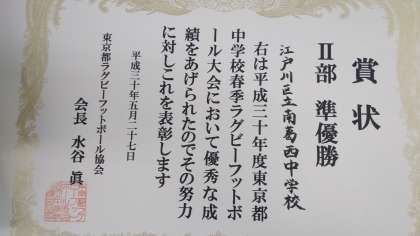 賞状
Ⅱ部 準優勝
江戸川区立南葛西中学校
右は平成三十年度東京都
中学校春季ラグビーフットボ
ール大会において優秀な成
績をあげられたのでその努力
に対しこれを表彰します
平成三十年五月二十七日
東京都ラグビーフットボール協会
会長 水谷 眞